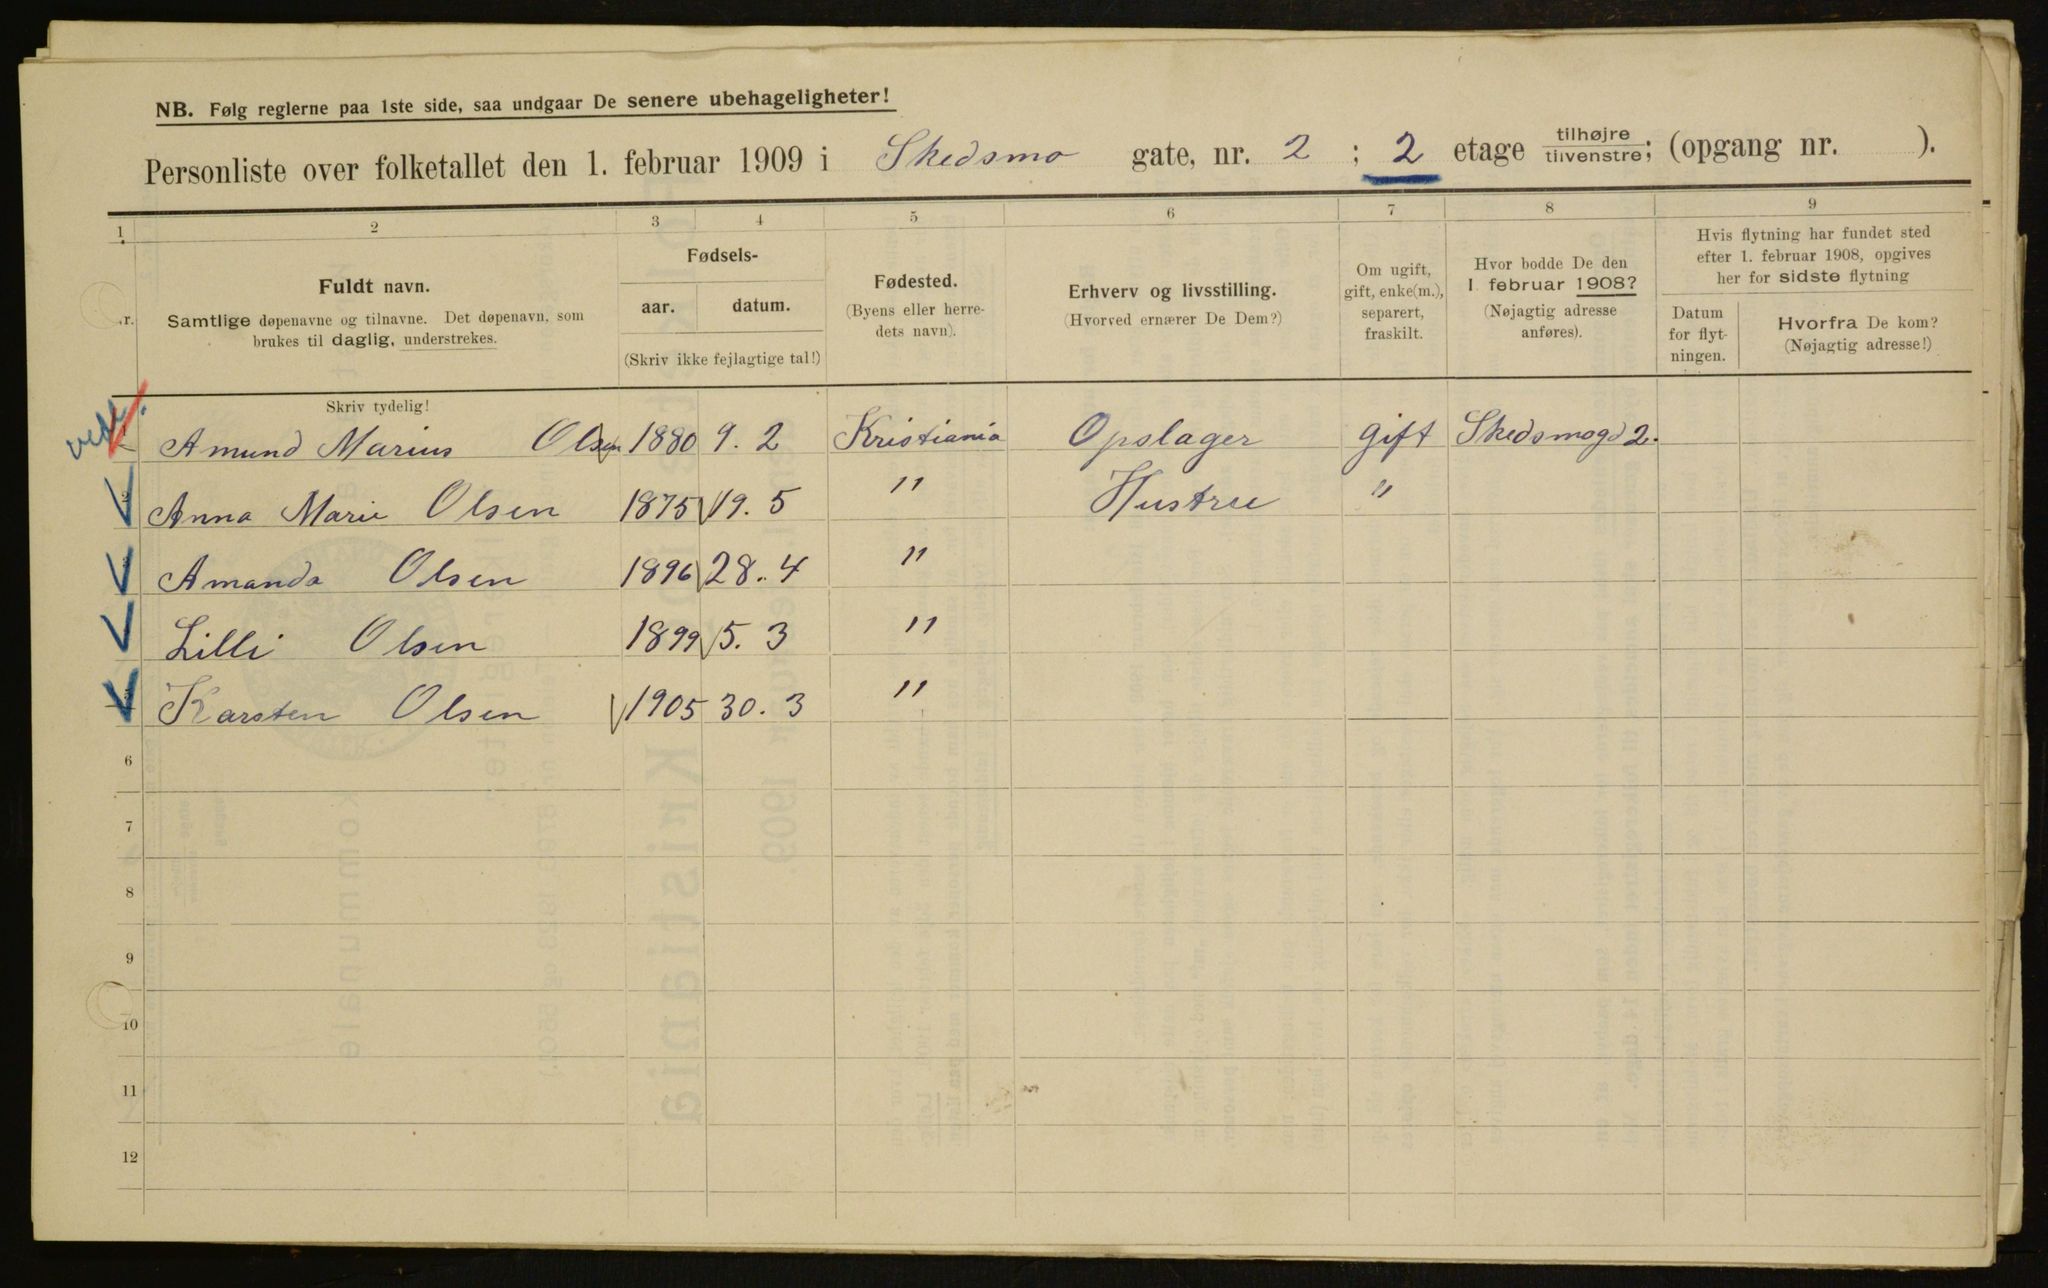 NB. Følg reglerne paa 1ste side, saa undgaar De senere ubehageligheter!
Personliste over folketallet den 1. februar 1909 i Skedsmo gate, nr. 2 ; 2 etage tilhøjre tilvenstre; (opgang nr. ).
1 2 3 4 5 6 7 8 9
Fuldt navn.
Samtlige døpenavne og tilnavne. Det døpenavn, som
brukes til daglig, understrekes.
Fødsels-
aar. datum.
(Skriv ikke fejlagtige tal!)
Fødested.
(Byens eller herre-
dets navn).
Erhverv og livsstilling.
(Hvorved ernærer De Dem?)
Om ugift,
gift, enke(m.),
separert,
fraskilt.
Hvor bodde De den
1 februar 1908?
(Nøjagtig adresse
anføres).
Hvis flytning har fundet sted
efter 1. februar 1908, opgives
her for sidste flytning
Datum
for flyt-
ningen.
Hvorfra De kom?
(Nøjagtig adresse!)
Skriv tydelig!
Amund Marius Olsen 1880 9. 2 Kristiania Opslager gift Skedsmogd 2.
Anna Marie Olsen 1875 19. 5 " Hustru "
Amanda Olsen 1896 28. 4 "
Lilli Olsen 1899 5. 3 "
Karsten Olsen 1905 30. 3 "
6
7
8
9
10
11
12